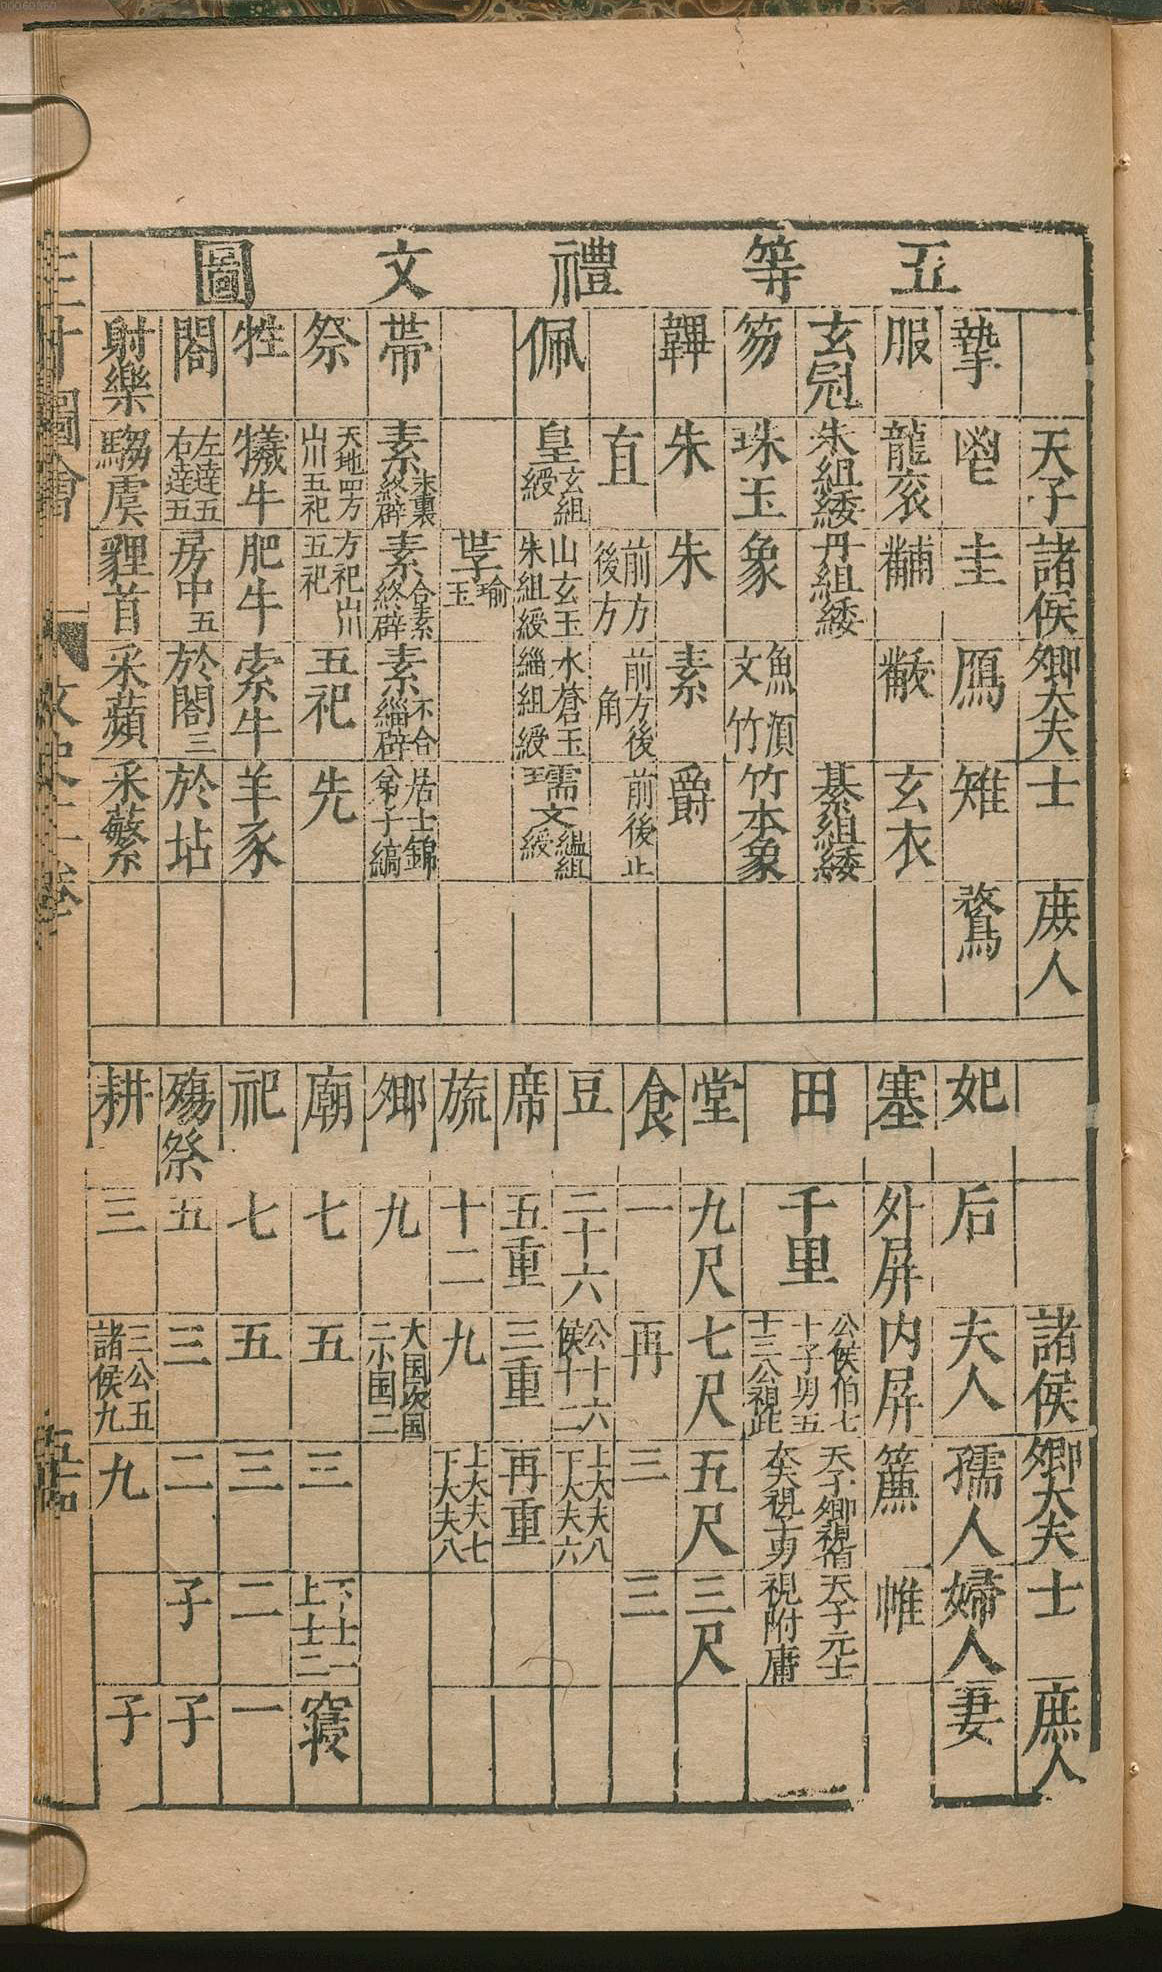 五等禮文圖
天子 諸侯 卿大夫 士 庶人
摯 鬯 圭 鴈 雉 鶩
服 龍衮 黼 黻 玄衣
玄冠 朱組綾 丹組綾 綦組綾
笏 珠玉 象 魚須文竹 竹本象
韠 朱 朱 素 爵
直 前方後方 前方後角 前後正
佩 皇玄組綬 山玄玉朱組綬 水蒼玉緇組綬 瓀文縕組綬
世子瑜玉
帶 素朱裏終辟 素合素終辟 素不合緇辟 居士錦弟子縞
祭 天地四方山川五祀 方祀山川五祀 五祀 先
牲 犧牛 肥牛 索牛 羊豕
閣 左達五右達五 房中五 於閣三 於坫
射樂 騶虞 貍首 采蘋 采蘩
諸侯 卿大夫 士 庶人
妃 后 夫人 孺人 婦人 妻
塞 外屏 内屏 簾 帷
田 千里 公侯伯七十子男五十三公視此 天子卿視伯大夫視子男 天子元士視附庸
堂 九尺 七尺 五尺 三尺
食 一 再 三 三
豆 二十六 公十六侯十二 上大夫八下大夫六
席 五重 三重 再重
旒 十二 九 上大夫七下大夫八
卿 九 大国次国二小国二
廟 七 五 三 下士一上士二 寢
祀 七 五 三 二 一
殤祭 五 三 二 子 子
耕 三 三公五諸侯九 九 子
三才圖會
文史二卷